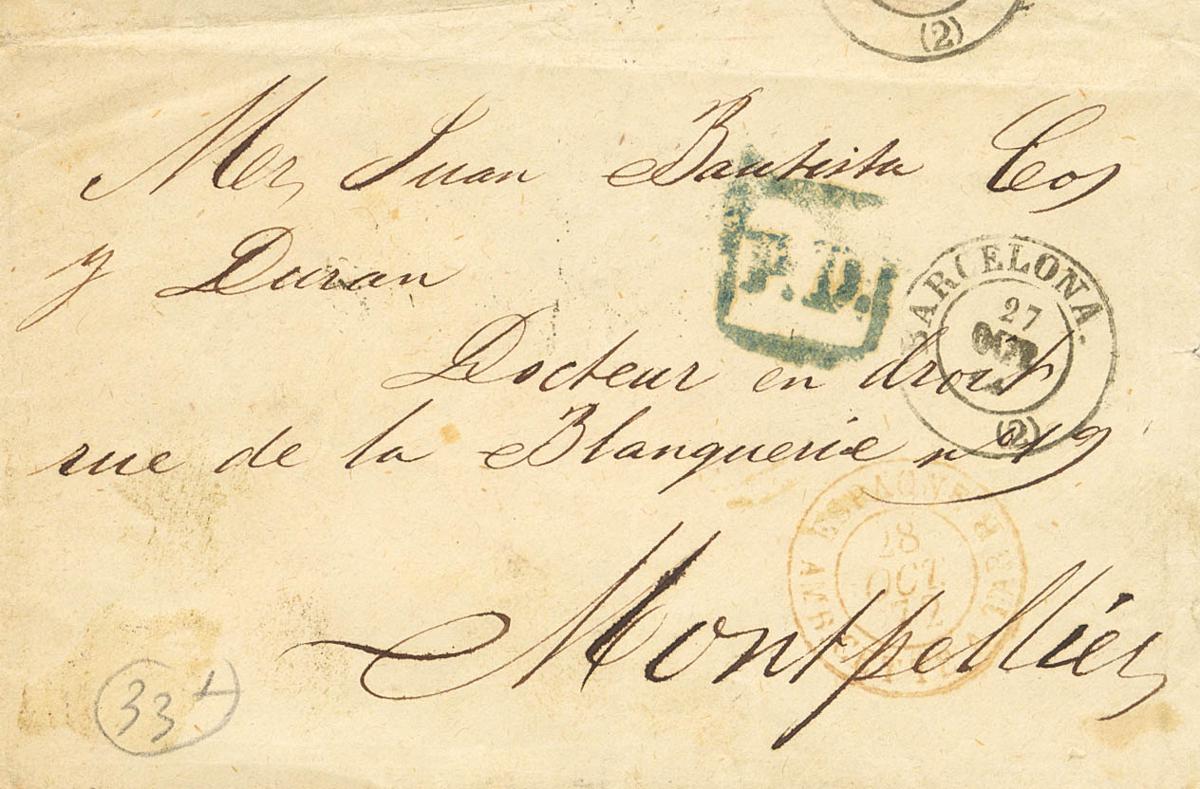 (2)
Mr, Juan Bautista Cos
y Duran
P.D.
BARCELONA.
27
OCT
(2)
Docteur en droit
rue de la Blanquerie n 19
ESPAGNE
28
OCT
72
MARSEILLE
Montpellier
33